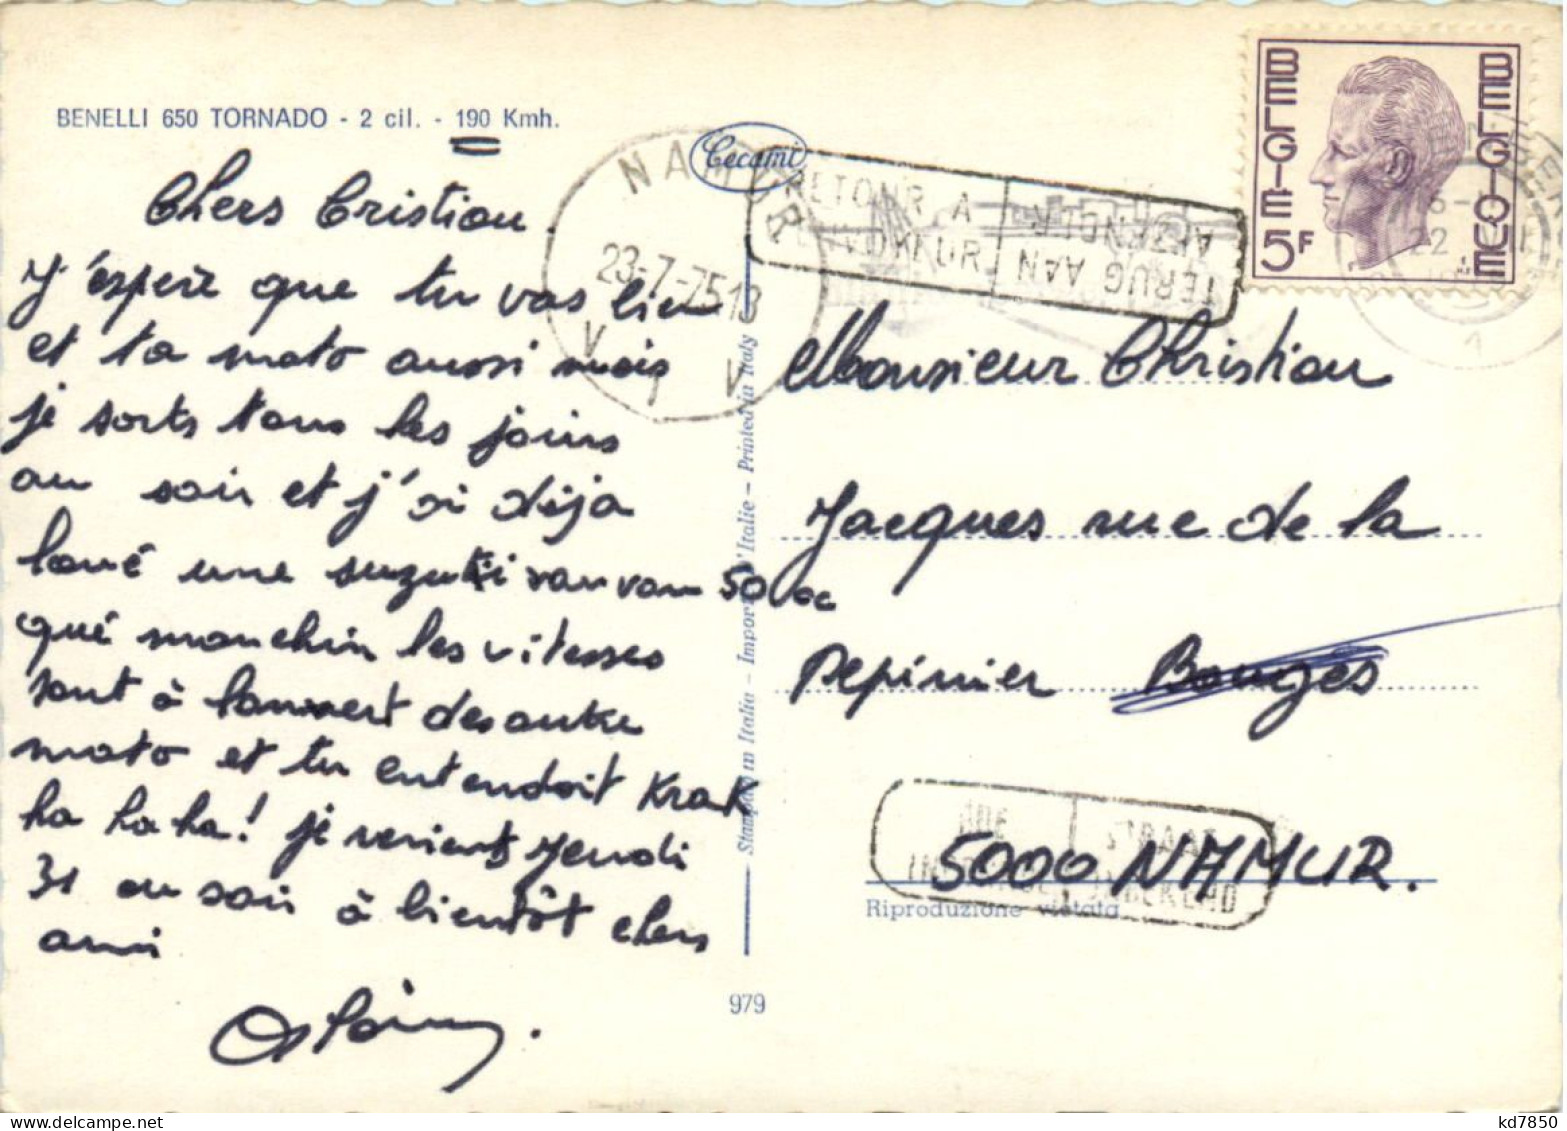 BENELLI 650 TORNADO - 2 cil. - 190 Kmh.
Chers Cristian
J'espere que tu vas bien
et ta moto aussi mais
je sorts tous les jours
au soir et j'ai déja
loué une suzuki van van 50 cc
qué manchin les vitesses
sont à l'anvert des autre
moto et tu entendoit Krak
ha ha ha! je reviens Jeudi
31 au soir à bientôt chers
ami
Cecami
NAMUR
23-7-75 18
V 1 V
RETOUR A
L'ENVOYEUR
TERUG AAN
AFZENDER
BELGIE
BELGIQUE
5F
22
1
Monsieur Christian
Jacques rue de la
Pepinier Bouges
5000 NAMUR.
RUE
INCONNUE
STRAAT
ONBEKEND
Riproduzione vietata
Stampato in Italia - Importé d'Italie - Printed in Italy
979
kd7850